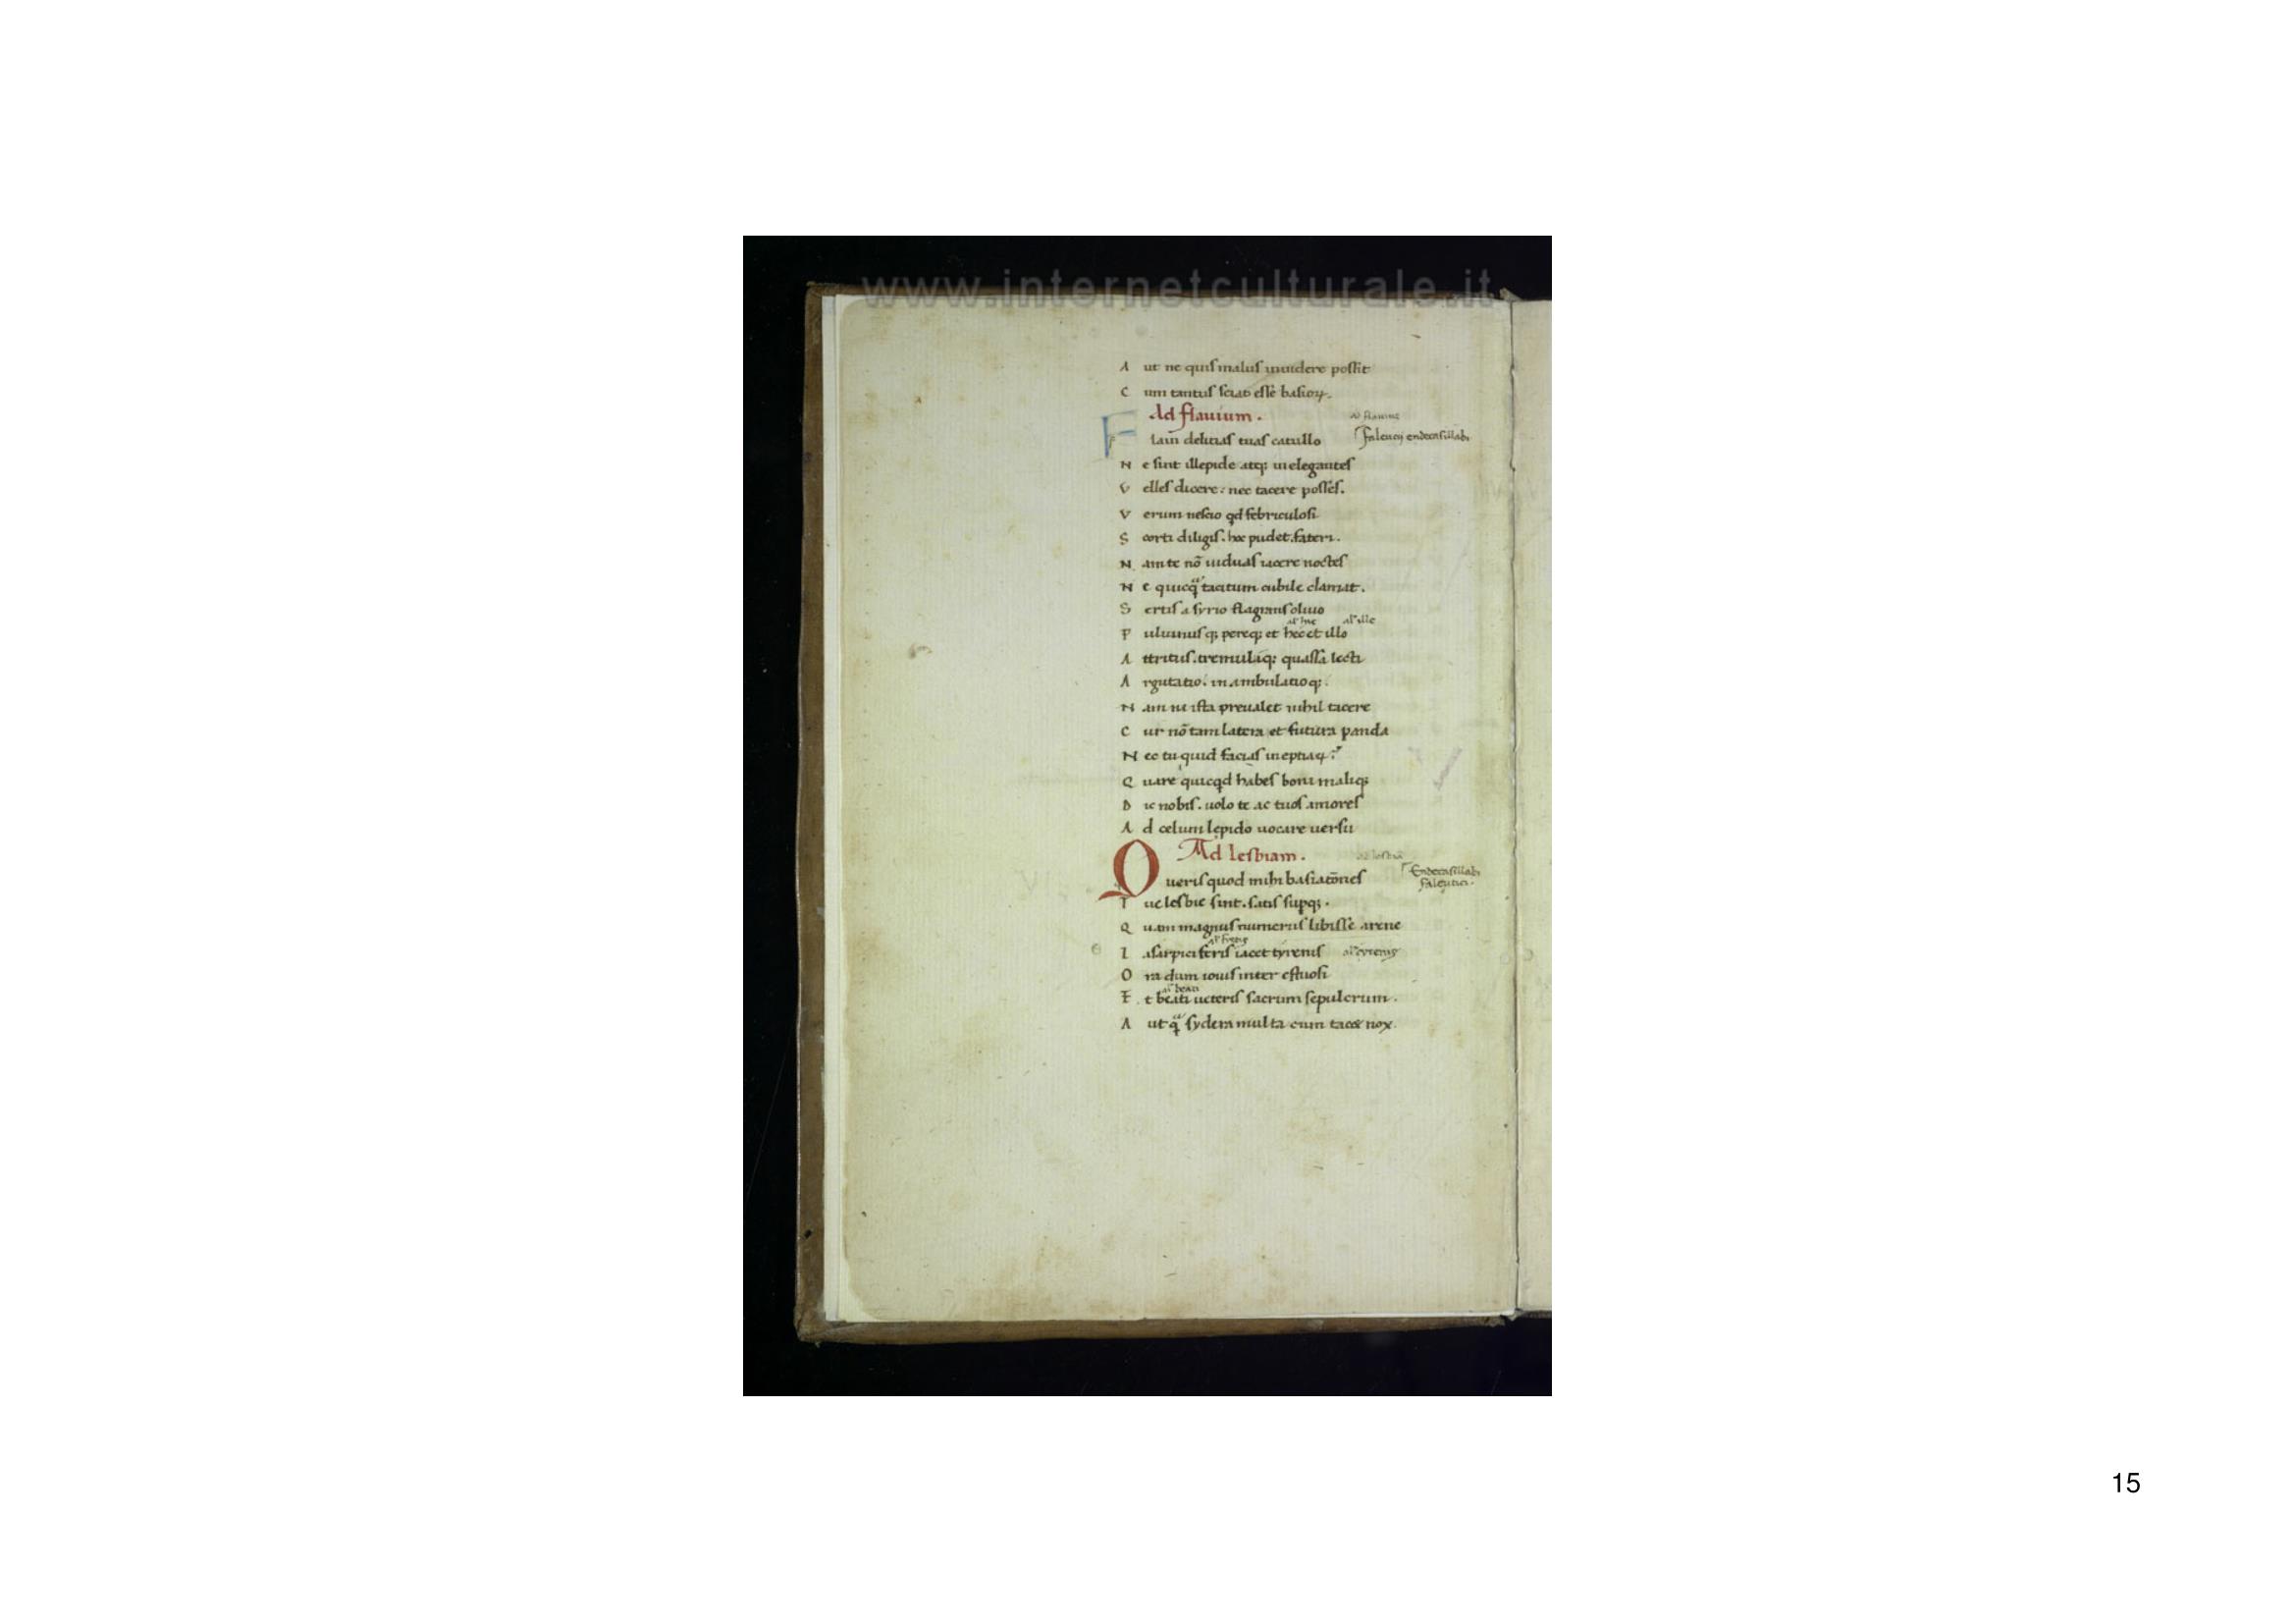 www.internetculturale.it
A ut ne quis malus inuidere possit
C um tantus sciat esse basioꝝ.
Ad flauium. al' flauiuz
F laui delitias tuas catullo Faleucij endecasillabi
N e sint illepide atq; inelegantes
V elles dicere: nec tacere posses.
V erum nescio qd febriculosi
S corti diligis. hoc pudet fateri.
N am te nō uiduas iacere noctes
N e quicq̄ tacitum cubile clamat.
S ertis a syrio flagrans oliuo
al' hic al' ille
P uluinusq; pereq; et hec et illo
A ttritus. tremulaq; quassa lecti
A rgutatio. inambulatioq;.
N am ni ista preualet nihil tacere
C ur nō tam latera et futura panda
N ec tu quid facias ineptiaꝝ?
Q uare quicqd habes boni maliq;
D ic nobis. uolo te ac tuos amores
A d celum lepido uocare uersu
Ad lesbiam.
Q ueris quod mihi basiatōnes Endecasillabi
Faleutici.
T ue lesbie sint. satis supq;.
Q uam magnus numerus libisse arene
L asarpici feris iacet tyrenis al' cyrenis
O ra dum iouis inter estuosi
al' beari
E t beati ueteris sacrum sepulcrum.
A ut q̄ sydera multa cum tacet nox.
15